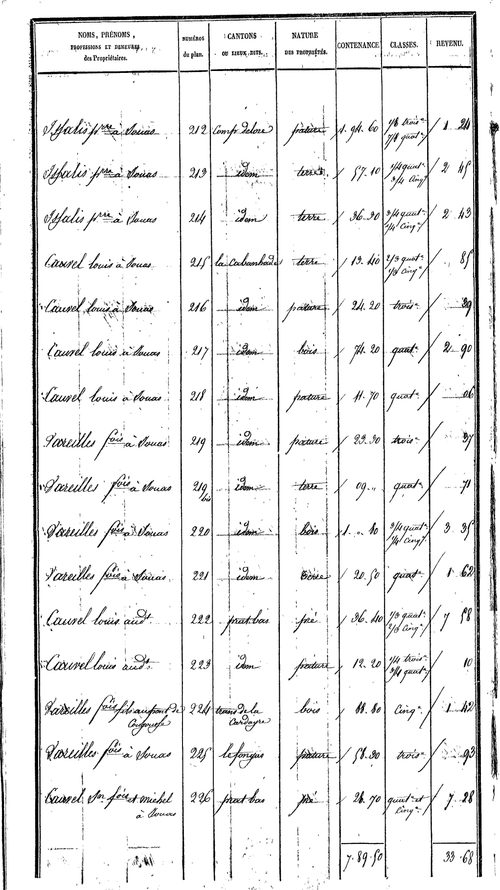 NOMS, PRÉNOMS, PROFESSIONS ET DEMEURES des Propriétaires. NUMÉROS du plan. CANTONS OU LIEUX DITS. NATURE DES PROPRIÉTÉS. CONTENANCE. CLASSES. REVENU.
pre à Jouas 212 pature 1. 94. 60 1/8 trois 7/8 quat 1 24
pre à Jouas 213 idem terre 57. 10 1/4 quat 3/4 Cinq 2 45
pre à Jouas 214 idem terre 36. 30 3/4 quat 1/4 Cinq 2 43
Caurel louis à Jouas 215 la Cabanhade terre 13. 40 2/3 quat 1/3 Cinq 85
Caurel louis à Jouas 216 idem pature 24. 20 trois 39
Caurel louis à Jouas 217 idem bois 74. 20 quat 2 90
Caurel louis à Jouas 218 idem pature 41. 70 quat 06
Vareilles fois à Jouas 219 idem pature 23. 30 trois 37
Vareilles fois à Jouas 219 bis idem terre 09 quat 71
Vareilles fois à Jouas 220 idem bois 1. 80 3/4 quat 1/4 Cinq 3 35
Vareilles fois à Jouas 221 idem 20. 50 quat 1 62
Caurel louis audt 222 prat bas pré 36. 40 1/3 quat 2/3 Cinq 7 58
Caurel louis audt 223 idem pature 12. 20 1/4 trois 3/4 quat 10
Vareilles fois fils au pont de 224 trans de la Cardayre bois 88. 80 Cinq 1 42
Vareilles fois à Jouas 225 pature 58. 30 trois 93
Caurel fois et michel à Jouas 226 prat bas pré 26. 70 quat et Cinq 7 28
7. 89. 50 33. 68